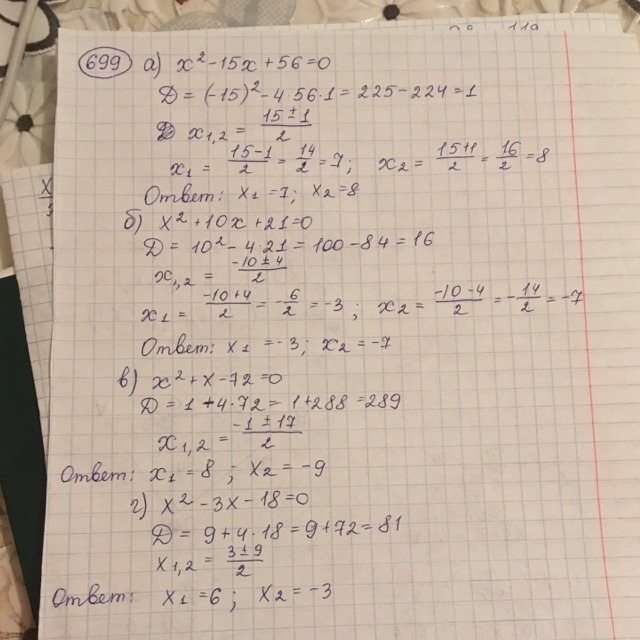 699 а) x² - 15x + 56 = 0
D = (-15)² - 4·56·1 = 225 - 224 = 1
x₁,₂ = (15 ± 1)/2
x₁ = (15-1)/2 = 14/2 = 7; x₂ = (15+1)/2 = 16/2 = 8
Ответ: x₁ = 7; x₂ = 8
б) x² + 10x + 21 = 0
D = 10² - 4·21 = 100 - 84 = 16
x,₂ = (-10 ± 4)/2
x₁ = (-10+4)/2 = -6/2 = -3; x₂ = (-10-4)/2 = -14/2 = -7
Ответ: x₁ = -3; x₂ = -7
в) x² + x - 72 = 0
D = 1 + 4·72 = 1 + 288 = 289
x₁,₂ = (-1 ± 17)/2
Ответ: x₁ = 8; x₂ = -9
г) x² - 3x - 18 = 0
D = 9 + 4·18 = 9 + 72 = 81
x₁,₂ = (3 ± 9)/2
Ответ: x₁ = 6; x₂ = -3